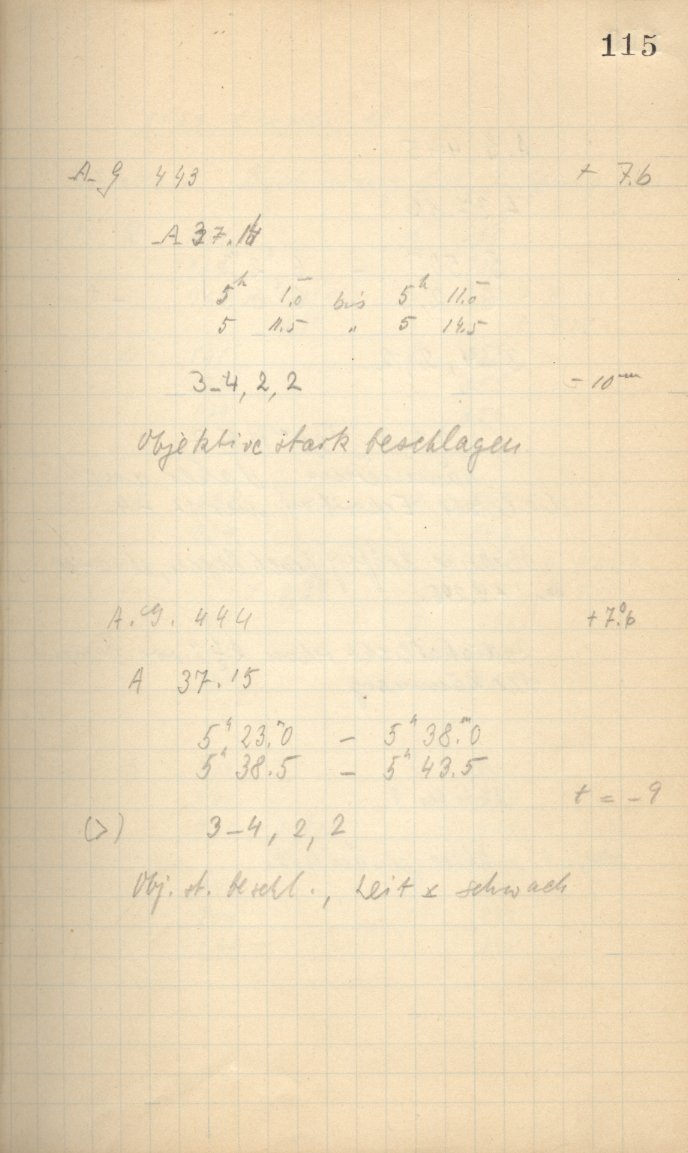 115
A. G 443 + 7.6
A 37.14
5h 1.0m bis 5h 11.0m
5 11.5 " 5 14.5
3-4, 2, 2 - 10m
Objektive stark beschlagen
A. G. 444 +7°.6
A 37.15
5h 23.m0 - 5h 38.m0
5h 38.5 - 5h 43.5
t = -9
(>) 3-4, 2, 2
Obj. st. beschl., Leit x schwach